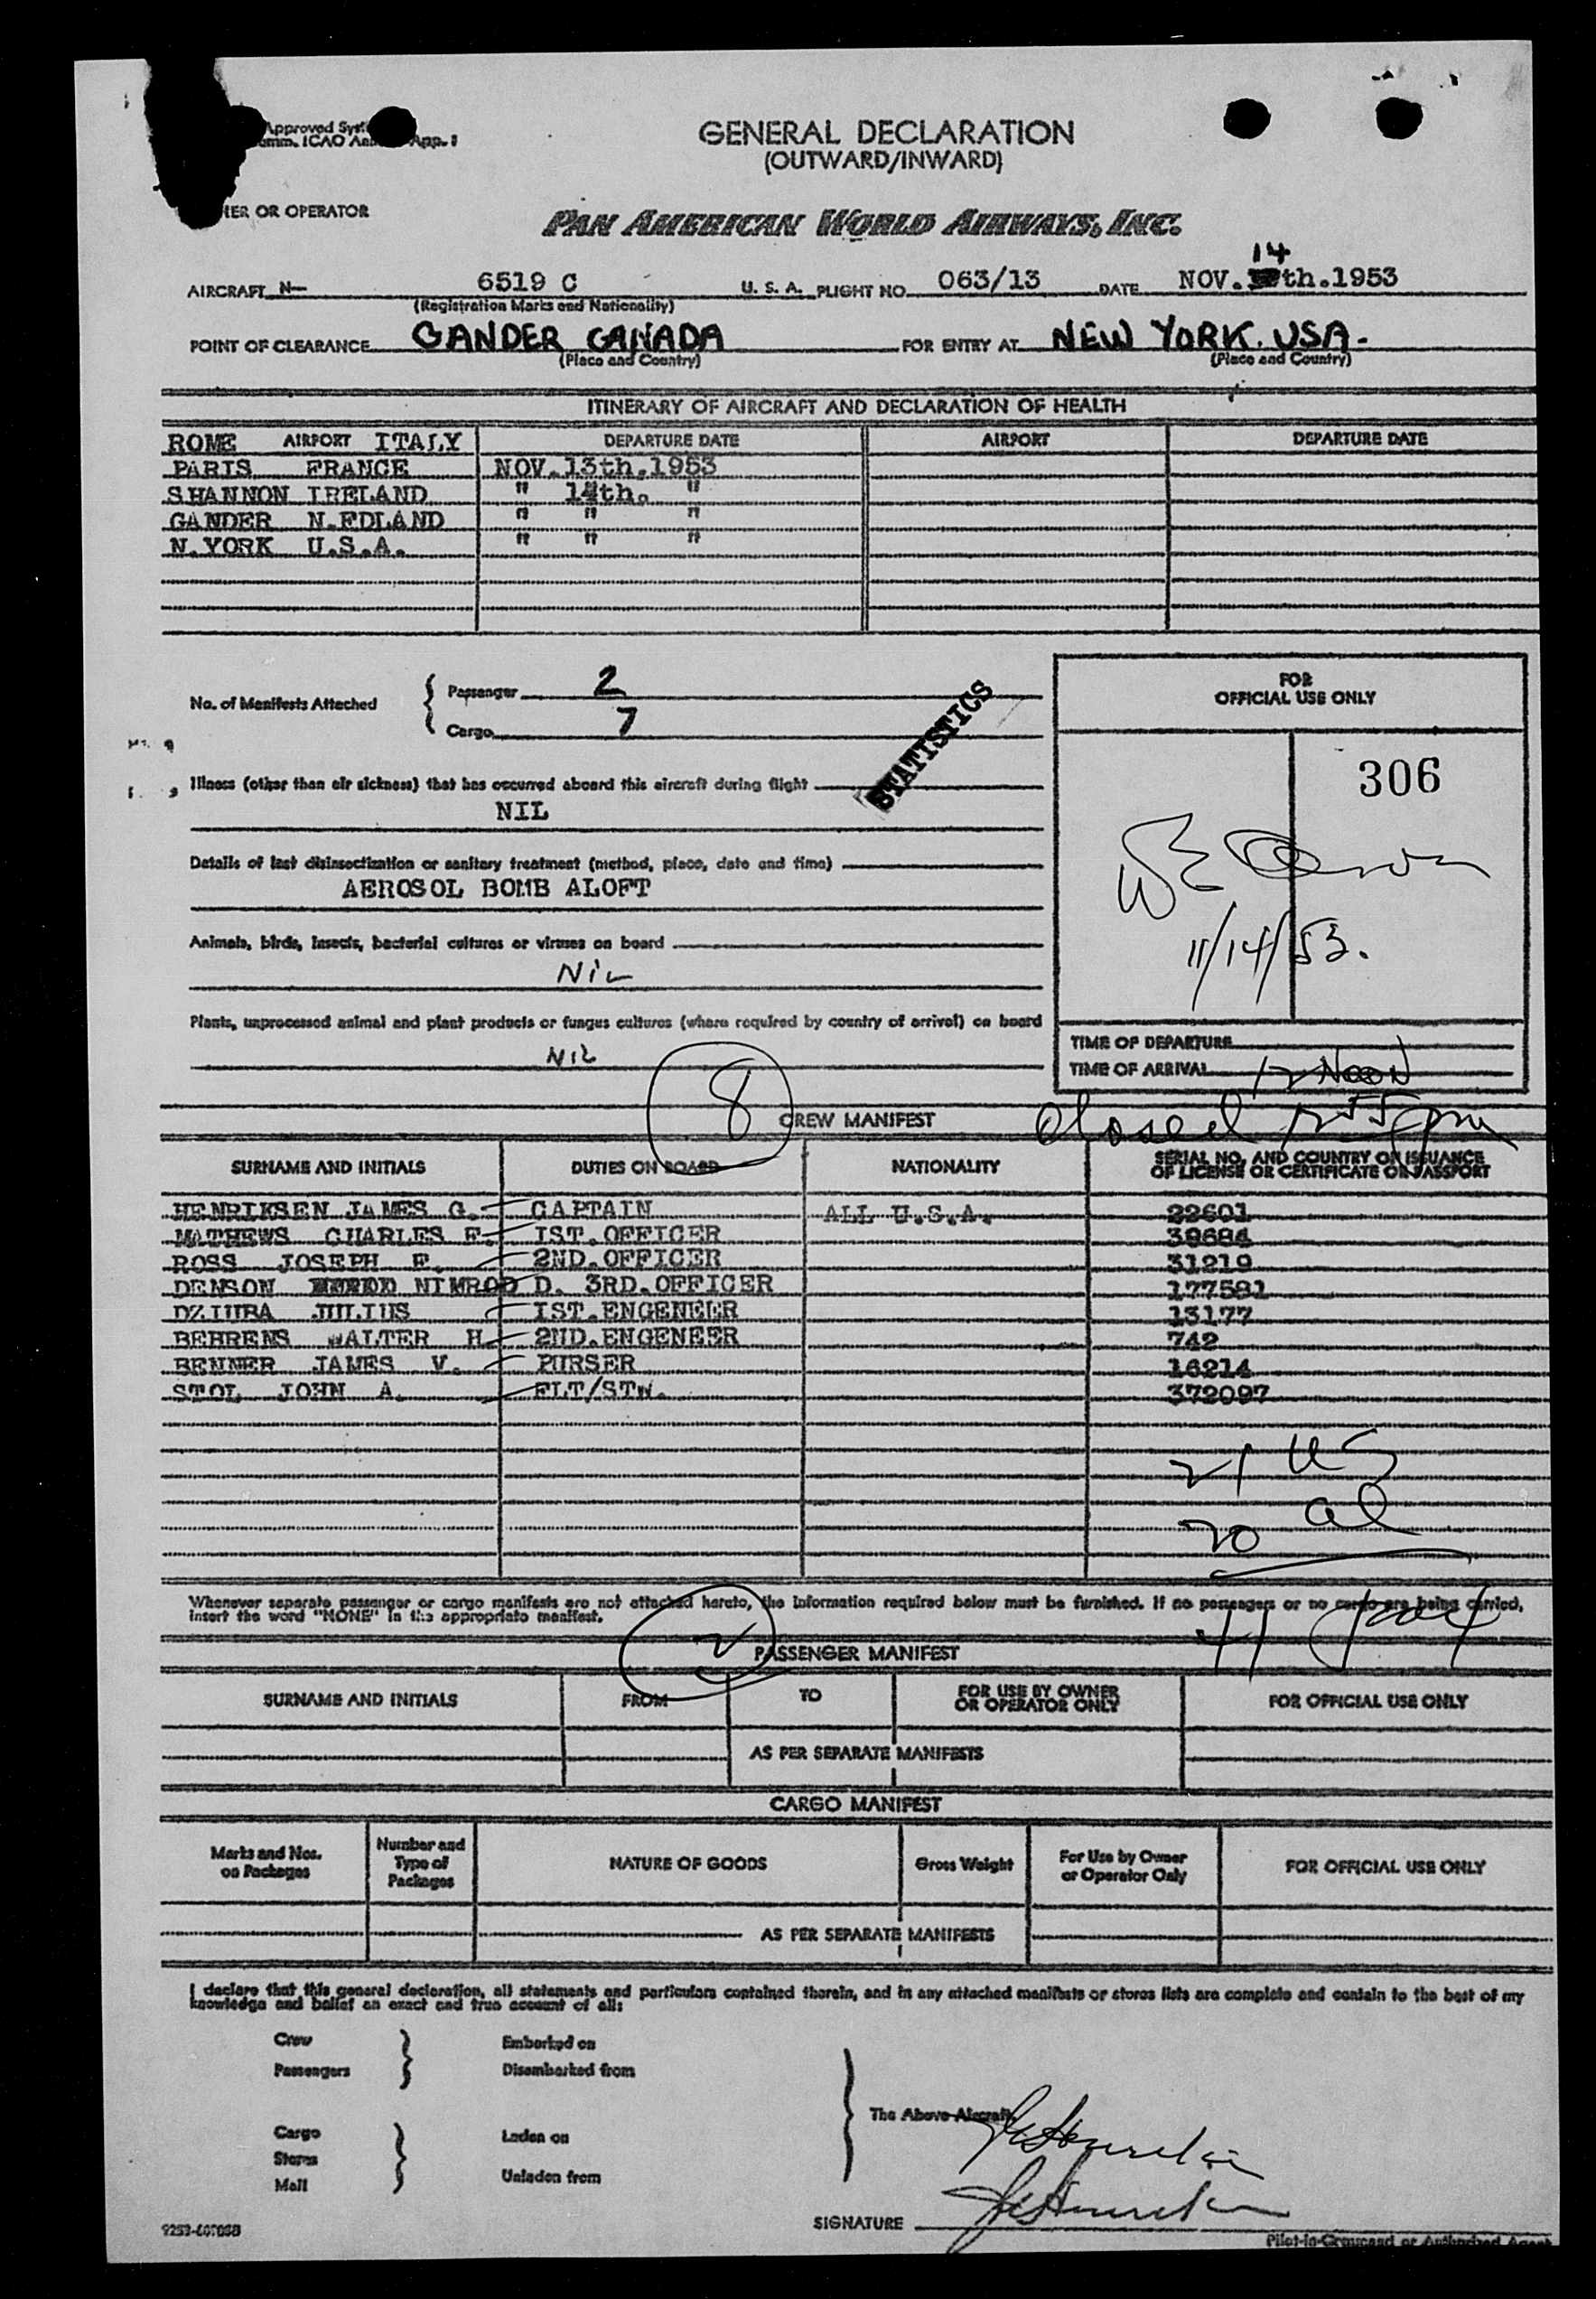 Approved Syst
omm. ICAO An App. 1
GENERAL DECLARATION
(OUTWARD/INWARD)
NER OR OPERATOR
PAN AMERICAN WORLD AIRWAYS, INC.
14
AIRCRAFT N— 6519 C U. S. A. FLIGHT NO. 063/13 DATE NOV. th.1953
(Registration Marks and Nationality)
POINT OF CLEARANCE GANDER CANADA FOR ENTRY AT NEW YORK. USA.
(Place and Country) (Place and Country)
ITINERARY OF AIRCRAFT AND DECLARATION OF HEALTH
ROME AIRPORT ITALY DEPARTURE DATE AIRPORT DEPARTURE DATE
PARIS FRANCE NOV.13th.1953
SHANNON IRELAND " 14th. "
GANDER N.FDLAND " " "
N.YORK U.S.A. " " "
FOR
OFFICIAL USE ONLY
No. of Manifests Attached { Passenger 2
Cargo 7
STATISTICS
306
Illness (other than air sickness) that has occurred aboard this aircraft during flight
NIL
Details of last disinsectization or sanitary treatment (method, place, date and time)
AEROSOL BOMB ALOFT
Animals, birds, insects, bacterial cultures or viruses on board
NiL
11/14/53.
Plants, unprocessed animal and plant products or fungus cultures (where required by country of arrival) on board
NiL
TIME OF DEPARTURE
TIME OF ARRIVAL 12 NOON
8
CREW MANIFEST
Closed 1255pm
SURNAME AND INITIALS DUTIES ON BOARD NATIONALITY SERIAL NO. AND COUNTRY OF ISSUANCE
OF LICENSE OR CERTIFICATE OR PASSPORT
HENRIKSEN JAMES G. CAPTAIN ALL U.S.A. 22601
MATHEWS CHARLES F. IST.OFFICER 39684
ROSS JOSEPH F. 2ND.OFFICER 31219
DENSON NIMROD D. 3RD.OFFICER 177581
DZIUBA JULIUS IST.ENGENEER 13177
BEHRENS WALTER H. 2ND.ENGENEER 742
BENNER JAMES V. PURSER 16214
STOL JOHN A. FLT/STW. 372097
21 US
20 al
Whenever separate passenger or cargo manifests are not attached hereto, the information required below must be furnished. If no passengers or no cargo are being carried,
insert the word "NONE" in the appropriate manifest.
2
41
PASSENGER MANIFEST
SURNAME AND INITIALS FROM TO FOR USE BY OWNER
OR OPERATOR ONLY FOR OFFICIAL USE ONLY
AS PER SEPARATE MANIFESTS
CARGO MANIFEST
Marks and Nos.
on Packages Number and
Type of
Packages NATURE OF GOODS Gross Weight For Use by Owner
or Operator Only FOR OFFICIAL USE ONLY
AS PER SEPARATE MANIFESTS
I declare that this general declaration, all statements and particulars contained therein, and in any attached manifests or stores lists are complete and contain to the best of my
knowledge and belief an exact and true account of all:
Crew Embarked on
Passengers Disembarked from
The Above Aircraft.
Cargo Laden on
Stores
Mail Unladen from
SIGNATURE
Pilot-in-Command or Authorized Agent